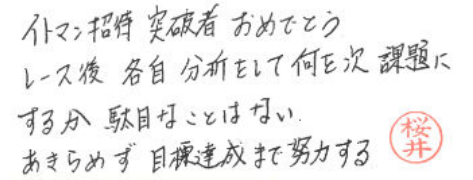 イトマン招待 突破者 おめでとう
レース後 各自 分析をして何を次 課題に
するか 駄目なことはない.
あきらめず 目標達成まで努力する
桜井